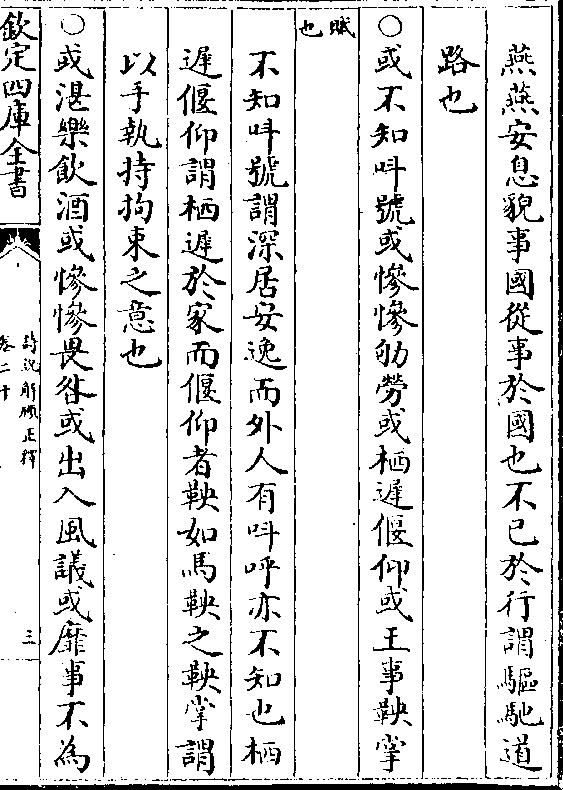 燕燕安息貌事國從事於國也不已於行謂驅馳道
路也
○或不知呌號或慘慘劬勞或栖遲偃仰或王事鞅掌
賦也
不知呌號謂深居安逸而外人有呌呼亦不知也栖
遲偃仰謂栖遲於家而偃仰者鞅如馬鞅之鞅掌謂
以手執持拘束之意也
○或湛樂飲酒或慘慘畏咎或出入風議或靡事不為
欽定四庫全書
詩說解頤正釋
卷二十
三